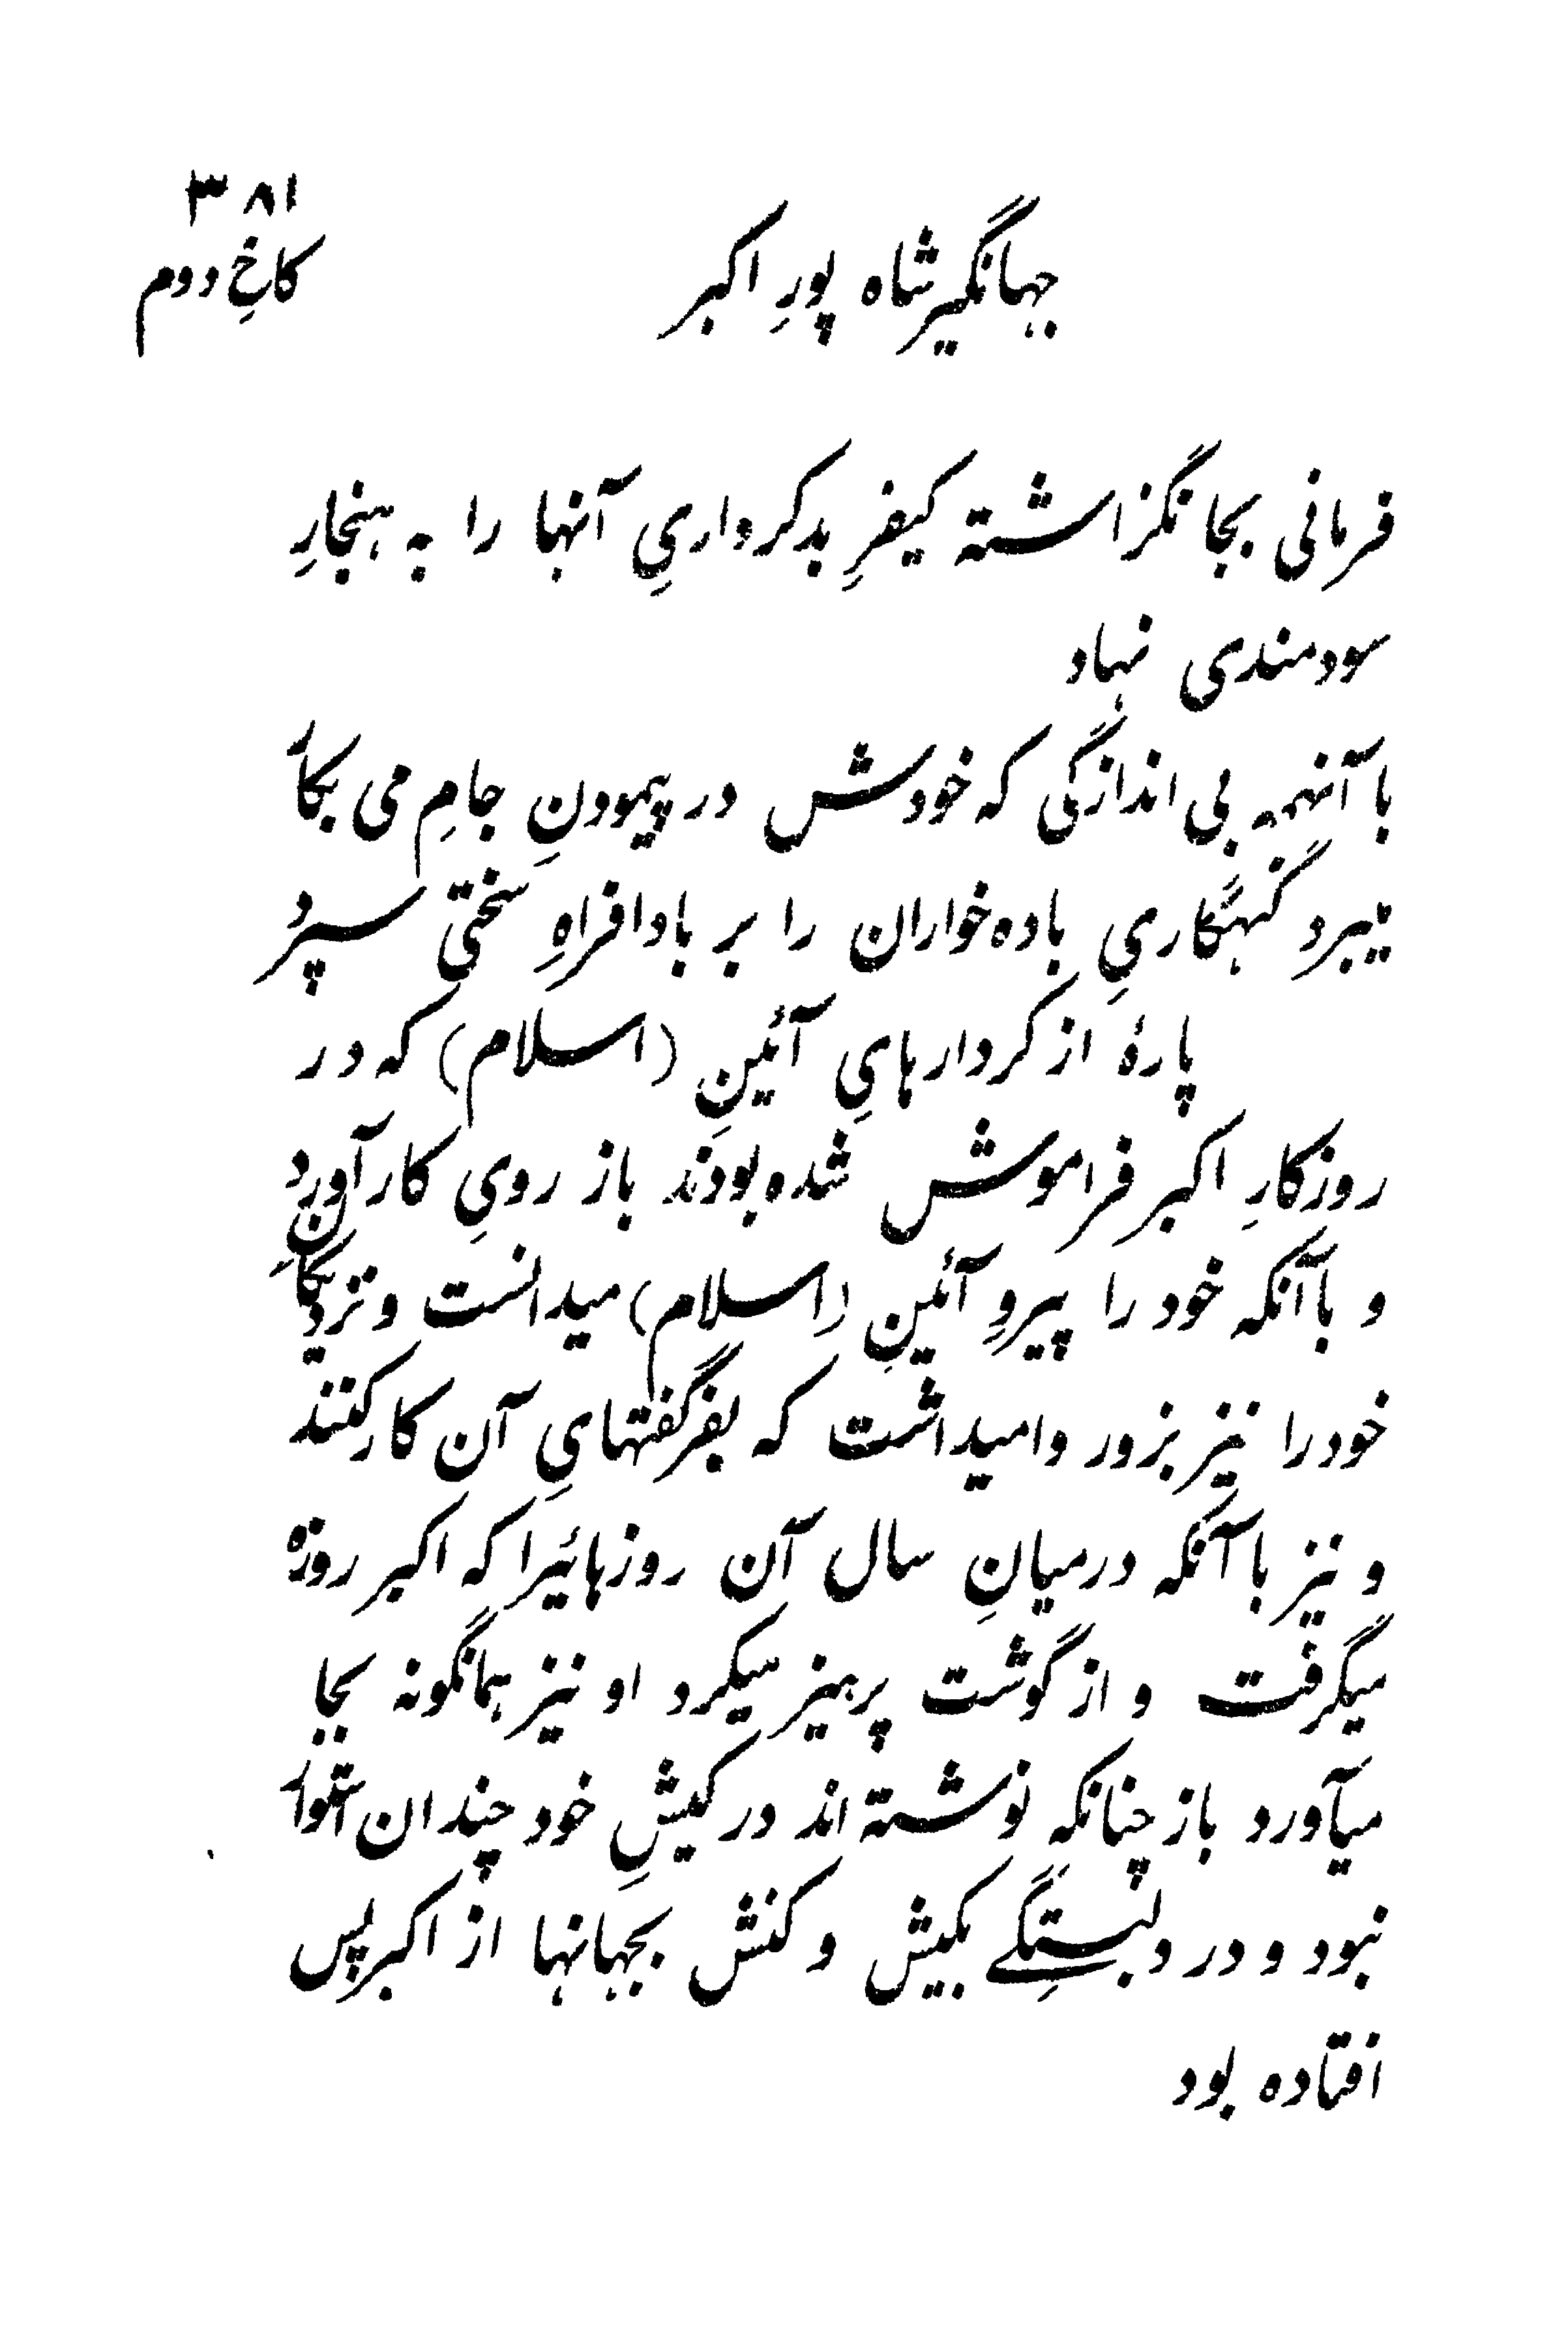 ۳۸۱
جهانگیر شاه پورِ اکبر
کاخِ دوم
فرمانی بجا نگزاشته کیفرِ بدکرداریِ آنها را به هنجارِ
سودمندی نهاد
با آنهمه بی اندازگی که خودش در پیمودنِ جامِ می بکار
میبرد گنهگاریِ باده خواران را بر بادافراهِ سختی سپرد
پارهٔ از کردارهایِ آئینِ (اسلام) که در
روزکارِ اکبر فراموش شده بودند باز رویِ کار آورد
و با آنکه خود را پیروِ آئینِ (اسلام) میدانست و نزدیکانِ
خود را نیز بزور وامیداشت که بفرگفتهایِ آن کار کنند
و نیز با آنکه درمیانِ سال آن روزهائیرا که اکبر روزه
میگرفت و از گوشت پرهیز میکرد او نیز همانگونه بجا
میآورد باز چنانکه نوشته اند در کیشِ خود چندان استوار
نبود و در دلبستگے بکیش و کنش بجهانها از اکبر پس
افتاده بود